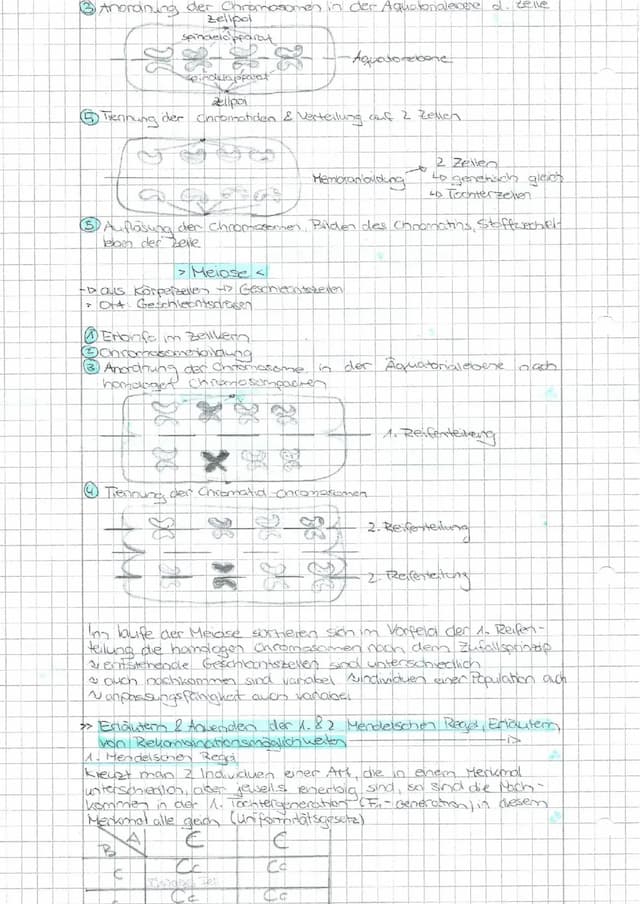 ③ Anordnung der Chromosomen in der Äquatorialebene d. Zelle
Zellpol
Spindelapparat
Äquatorebene
Spindelapparat
Zellpol
⑤ Trennung der Chromatiden & Verteilung auf 2 Zellen
2 Zellen
Membranbildung
↳ genetisch gleich
↳ Tochterzellen
⑤ Auflösung der Chromosomen, Bilden des Chromatins, Stoffwechsel-
leben der Zelle
> Meiose <
-▷ aus Körperzellen -▷ Geschlechtszellen
Ort: Geschlechtsdrüsen
① Erbinfo im Zellkern
② Chromosomenbildung
③ Anordnung der Chromosome in der Äquatorialebene nach
homologen Chromosompaaren
1. Reifenteilung
④ Trennung der Chromatid-Chromosomen
2. Reifenteilung
2. Reifenteilung
Im laufe der Meiose sortieren sich im Vorfeld der 1. Reifen-
teilung die homologen Chromosomen nach dem Zufallsprinzip
entstehende Geschlechtszellen sind unterschiedlich
auch nachkommen sind variabel Individuen einer Population auch
anpassungsfähigkeit auch variabel
>> Erläutern & Anwenden der 1. & 2 Mendelschen Regel, Erläutern
von Rekombinationsmöglichkeiten
1. Mendelschen Regel
Kreuzt man 2 Individuen einer Art, die in einem Merkmal
unterscheiden, aber jeweils reinerbig sind, so sind die Nach-
kommen in der 1. Tochtergeneration (F₁-Generation) in diesem
Merkmal alle gleich (Uniformitätsgesetz)
A C C
B
c Cc Cc
Cc Cc